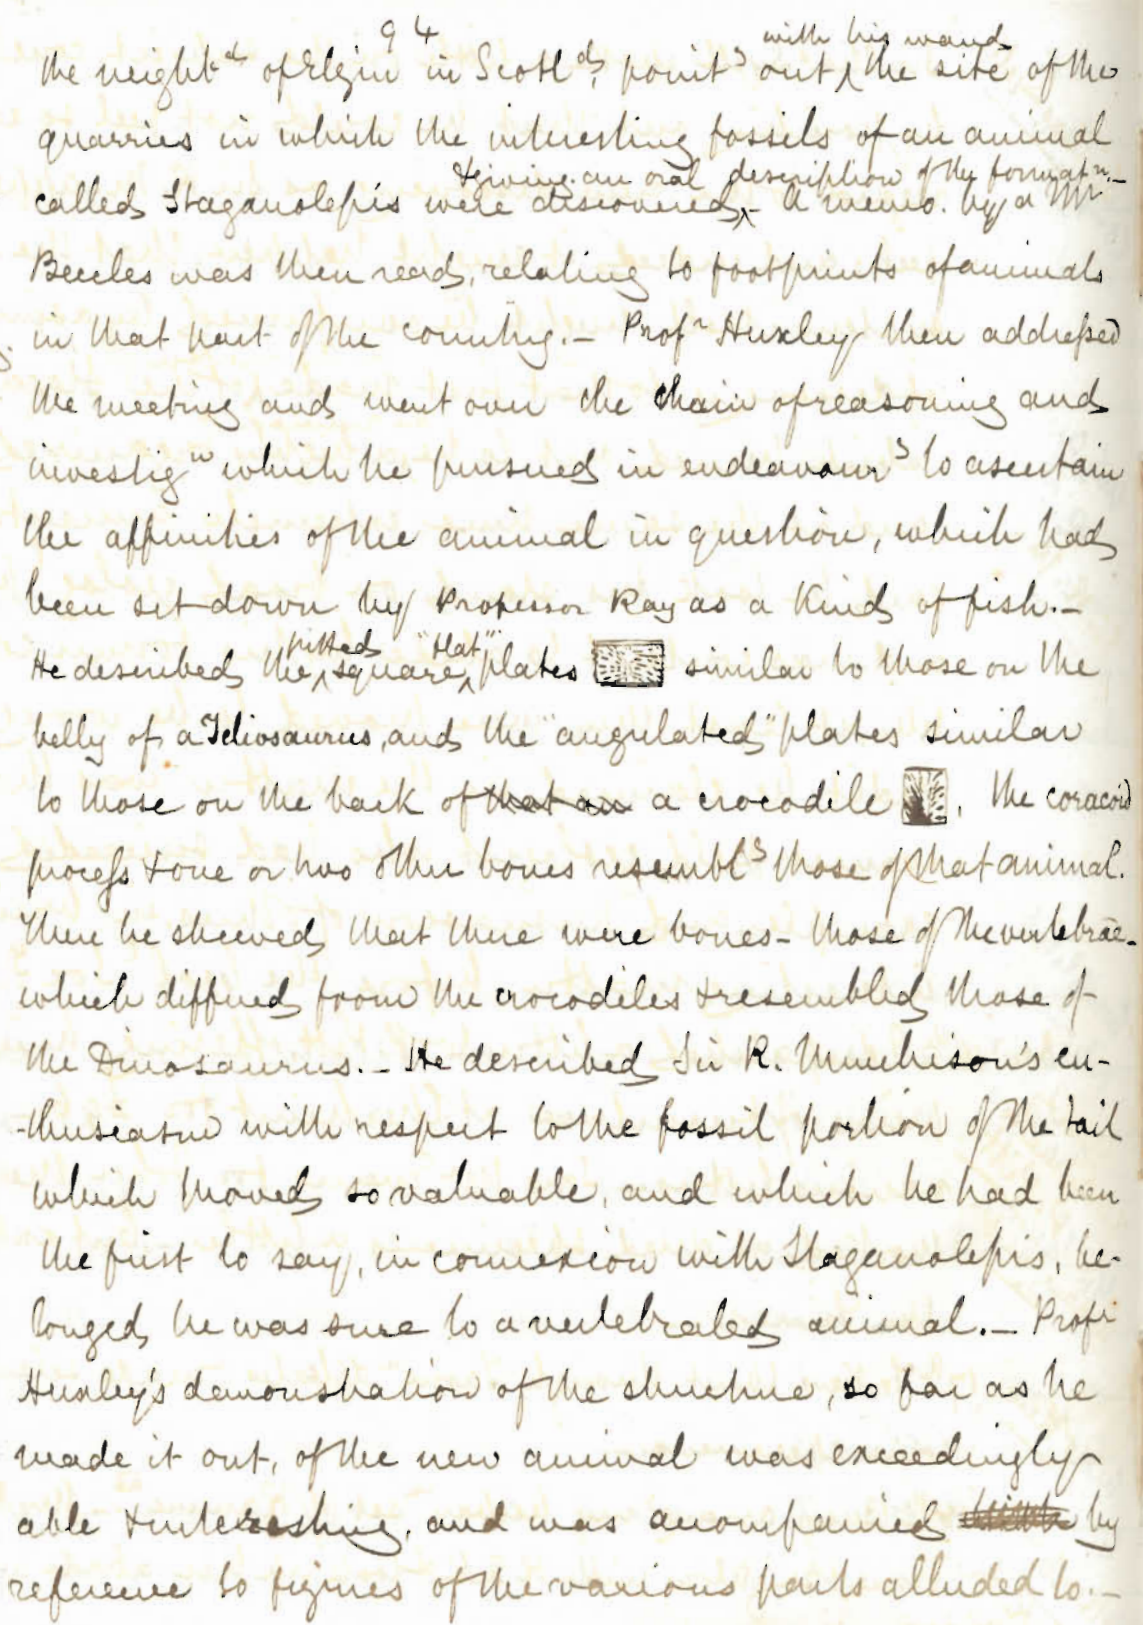 94
the neighbd of Elgin in Scotld, points out ^ with his wand the site of the
quarries in which the interesting fossils of an animal
called Staganolepis were discovered, ^ & giving an oral description of the formatn.- A memo. by a Mr
Beccles was then read, relating to footprints of animals
in that part of the country.- Profr Huxley then addressed
the meeting and went over the chain of reasoning and
investign which he pursued in endeavourg to ascertain
the affinities of the animal in question, which had
been set down by Professor Ray as a kind of fish.-
He described the ^ pitted square ^ "flat" plates similar to those on the
belly of a Teliosaurus, and the "angulated" plates similar
to those on the back of that an a crocodile . The coracoid
process & one or two other bones resemblg those of that animal.
Then he shewed that there were bones - those of the vertebrae -
which differed from the crocodiles & resembled those of
the Dinosaurus.- He described Sir R. Murchison's en-
-thusiasm with respect to the fossil portion of the tail
which proved so valuable, and which he had been
the first to say, in connexion with Staganolepis, be-
longed he was sure to a vertebrated animal.- Profr
Huxley's demonstration of the structure, so far as he
made it out, of the new animal was exceedingly
able & interesting, and was accompanied by
reference to figures of the various parts alluded to.-